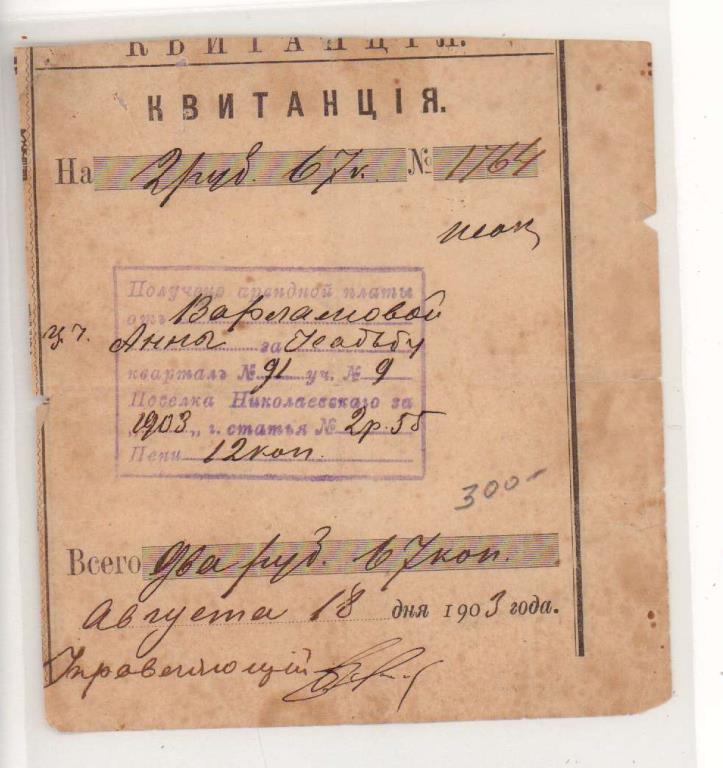 КВИТАНЦІЯ.
КВИТАНЦІЯ.
На 2 руб. 67 к. № 1764
Получено арендной платы
отъ Варламовой
Анны за Усадьбу
кварталъ № 91 уч. № 9
Поселка Николаевскаго за
"1903" г. статья № 2 р. 55
Пени 12 коп.
300-
Всего два руб. 67 коп.
Августа 18 дня 1903 года.
Управляющій